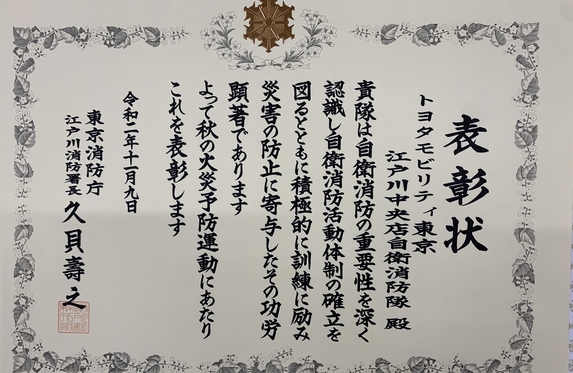 表彰状
トヨタモビリティ東京
江戸川中央店自衛消防隊 殿
貴隊は自衛消防の重要性を深く
認識し自衛消防活動体制の確立を
図るとともに積極的に訓練に励み
災害の防止に寄与したその功労
顕著であります
よって秋の火災予防運動にあたり
これを表彰します
令和二年十一月九日
東京消防庁
江戸川消防署長 久貝壽之